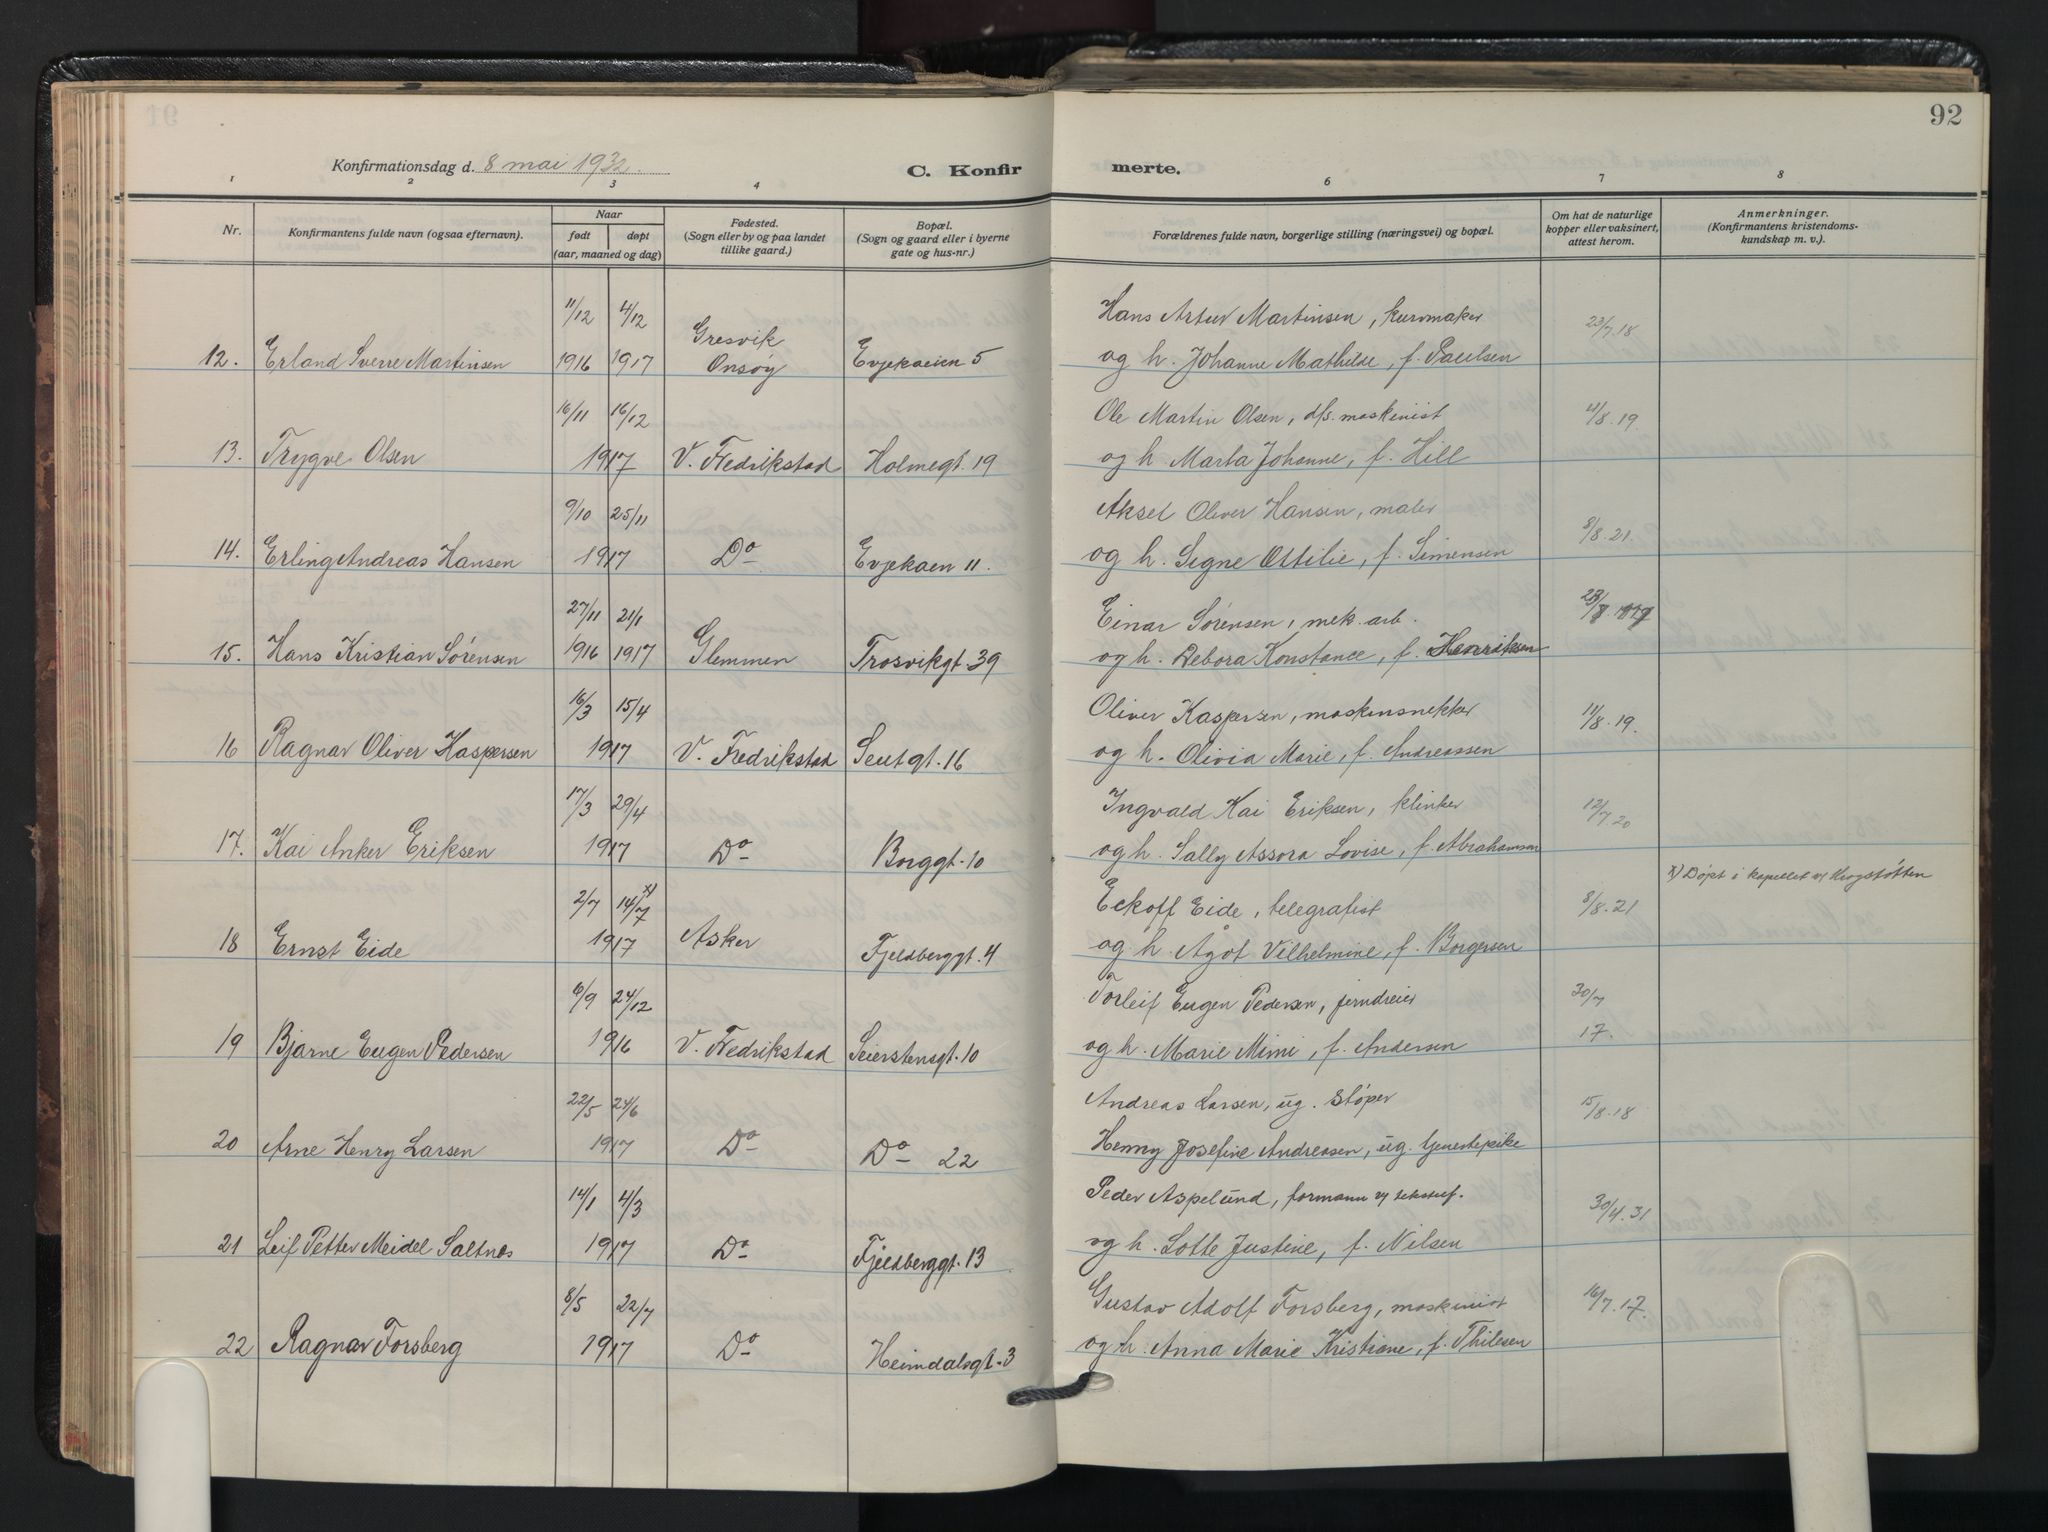 92
Konfirmationsdag d. 8 mai 1932. C. Konfirmerte.
1 2 3 4 6 7 8
Nr. Konfirmantens fulde navn (ogsaa efternavn). Naar født døpt (aar, maaned og dag) Fødested. (Sogn eller by og paa landet tillike gaard.) Bopæl. (Sogn og gaard eller i byerne gate og hus-nr.) Forældrenes fulde navn, borgerlige stilling (næringsvei) og bopæl. Om hat de naturlige kopper eller vaksinert, attest herom. Anmerkninger. (Konfirmantens kristendomskundskap m. v.).
11/12 4/12 Gresvik Hans Artur Martinsen, kurvmaker 23/7.18
12. Erland Sverre Martinsen 1916 1917 Onsøy Evjekaien 5 og h. Johanne Mathilde, f. Paulsen
16/11 16/12 Ole Martin Olsen, d/s. maskinist 4/8.19.
13. Trygve Olsen 1917 V. Fredrikstad Holmegt. 19 og h. Marta Johanne, f. Hill
9/10 25/11 Aksel Oliver Hansen, maler 8/8.21.
14. Erling Andreas Hansen 1917 Do Evjekaen 11. og h. Signe Ottilie, f. Simensen
27/11 21/1 Einar Sørensen, mek. arb.
15. Hans Kristian Sørensen 1916 1917 Glemmen Trosvikgt. 39 og h. Debora Konstance, f. Henriksen
16/3 15/4 Oliver Kaspersen, maskinsnekker 11/8.19.
16 Ragnar Oliver Kaspersen 1917 V. Fredrikstad Seutgt. 16 og h. Olivia Marie, f. Andreassen
17/3 29/4 Ingvald Kai Eriksen, klinker 12/7 20
17. Kai Anker Eriksen 1917 Do Borggt. 10 og h. Sally Assora Lovise, f. Abrahamsen
x) Døpt i kapellet v/ Krogstøtten
2/7 14/7 x) Eckoff Eide, telegrafist 8/8.21
18 Ernst Eide 1917 Asker Fjeldberggt. 4 og h. Ågot Vilhelmine, f. Borgersen
6/9 24/12 Torleif Eugen Pedersen, jerndreier 30/7
19 Bjarne Eugen Pedersen 1916 V. Fredrikstad Seierstensgt. 10 og h. Marie Mimi, f. Andersen 17.
22/5 24/6 Andreas Larsen, ug. støper 15/8.18
20 Arne Henry Larsen 1917 Do Do 22 Henny Josefine Andreasen, ug. tjenestepike
14/1 4/3 Peder Aspelund, formann v/ 30/4.31
21 Leif Petter Meidel Saltnes 1917 Do Fjeldberggt. 13 og h. Lotte Justine, f. Nilsen
8/5 22/7 Gustav Adolf Forsberg, maskinist 16/7.17.
22 Ragnar Forsberg 1917 Do Heimdalsgt. 3 og h. Anna Marie Kristiane, f. Thilesen